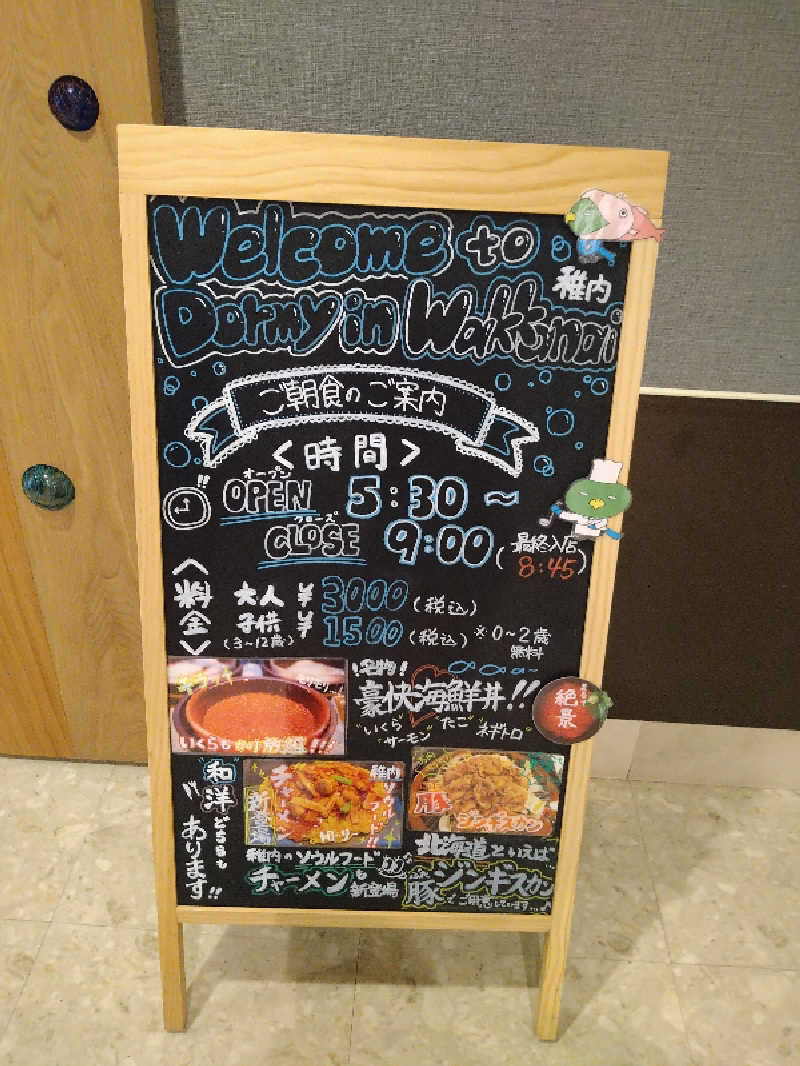 Welcome to
稚内
Dormy in Wakkanai
ご朝食のご案内
＜時間＞
オープン
OPEN 5:30～
クローズ
CLOSE 9:00
(最終入店
8:45)
＜料金＞
大人 ¥3000(税込)
子供 ¥1500(税込)
(3～12歳)
※0～2歳
無料
いくらもかけ放題!!!
!名物!
豪快海鮮丼!!
いくら
サーモン
たご
ネギトロ
絶景
和洋どちらも
あります!!
新登場
チャーメン
稚内
ソウルフード!!
稚内のソウルフード
チャーメンも
新登場
豚
ジンギスカン
北海道といえば
豚ジンギスカン